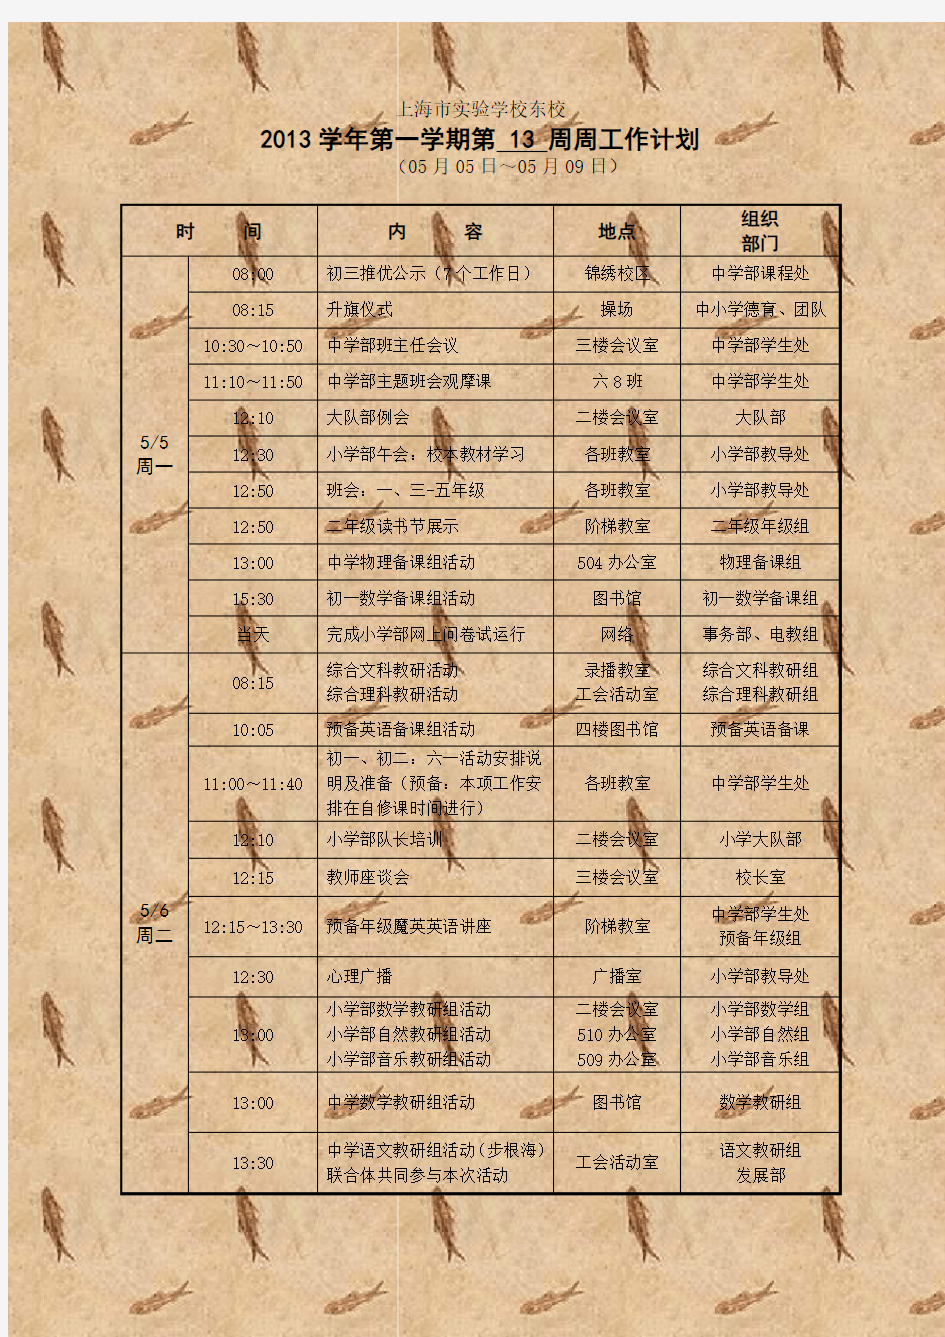 上海市实验学校东校
2013 学年第一学期第 13 周周工作计划
（05 月 05 日～05 月 09 日）
时 间 内 容 地点 组织
部门
5/5
周一
08:00 初三推优公示（7 个工作日） 锦绣校区 中学部课程处
08:15 升旗仪式 操场 中小学德育、团队
10:30～10:50 中学部班主任会议 三楼会议室 中学部学生处
11:10～11:50 中学部主题班会观摩课 六 8 班 中学部学生处
12:10 大队部例会 二楼会议室 大队部
12:30 小学部午会：校本教材学习 各班教室 小学部教导处
12:50 班会：一、三-五年级 各班教室 小学部教导处
12:50 二年级读书节展示 阶梯教室 二年级年级组
13:00 中学物理备课组活动 504 办公室 物理备课组
15:30 初一数学备课组活动 图书馆 初一数学备课组
当天 完成小学部网上问卷试运行 网络 事务部、电教组
5/6
周二
08:15 综合文科教研活动 录播教室 综合文科教研组
综合理科教研活动 工会活动室 综合理科教研组
10:05 预备英语备课组活动 四楼图书馆 预备英语备课
11:00～11:40 初一、初二：六一活动安排说
明及准备（预备：本项工作安 各班教室 中学部学生处
排在自修课时间进行）
12:10 小学部队长培训 二楼会议室 小学大队部
12:15 教师座谈会 三楼会议室 校长室
12:15～13:30 预备年级魔英英语讲座 阶梯教室 中学部学生处
预备年级组
12:30 心理广播 广播室 小学部教导处
13:00 小学部数学教研组活动 二楼会议室 小学部数学组
小学部自然教研组活动 510 办公室 小学部自然组
小学部音乐教研组活动 509 办公室 小学部音乐组
13:00 中学数学教研组活动 图书馆 数学教研组
13:30 中学语文教研组活动（步根海） 工会活动室 语文教研组
联合体共同参与本次活动 发展部